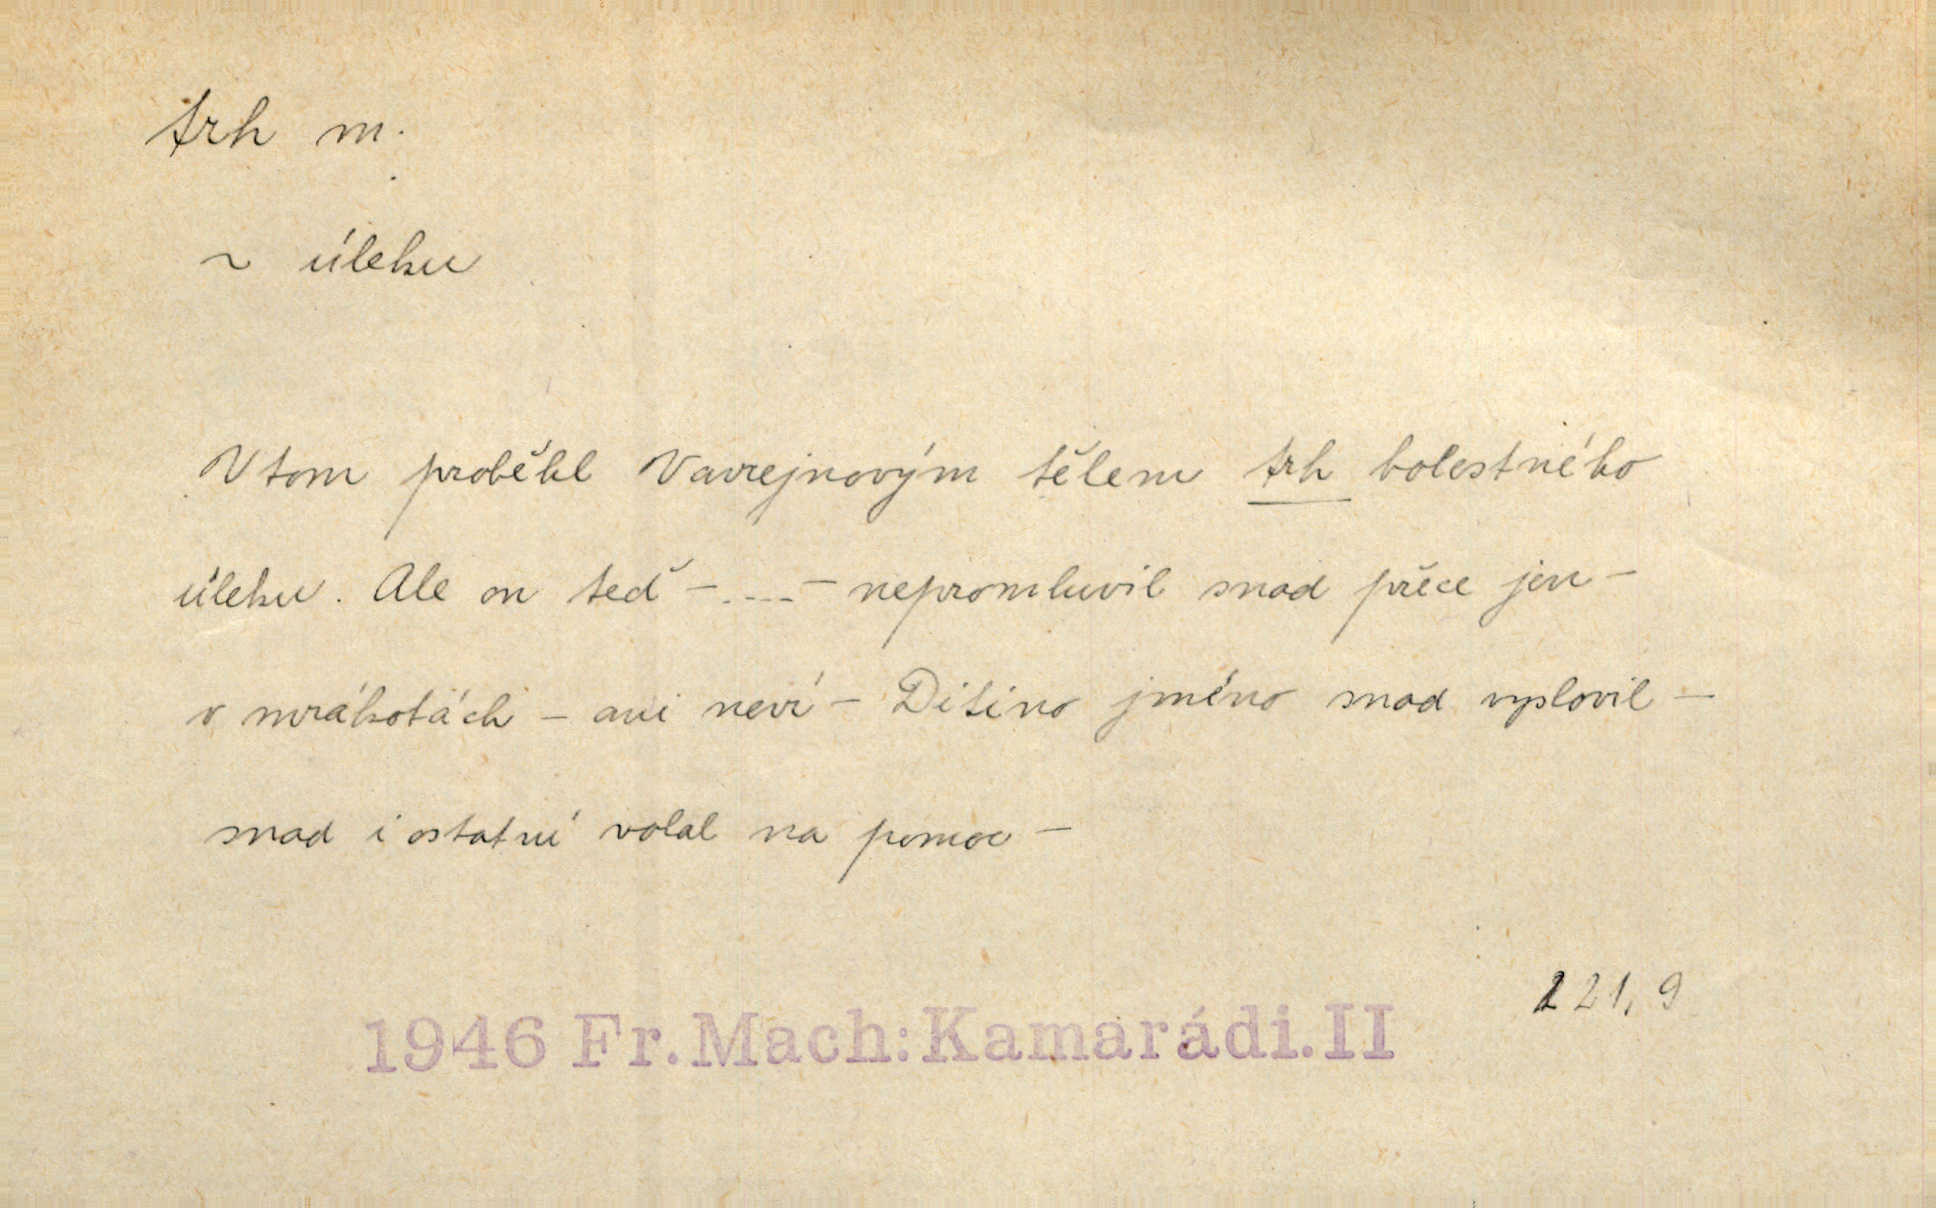 trh m.
~ úleku
Vtom proběhl Vavrejnovým tělem trh bolestného
úleku. Ale on teď – .... – nepromluvil snad přece jen –
v mrákotách – ani neví – Ditino jméno snad vyslovil –
snad i ostatní volal na pomoc –
221, 9
1946 Fr. Mach: Kamarádi. II